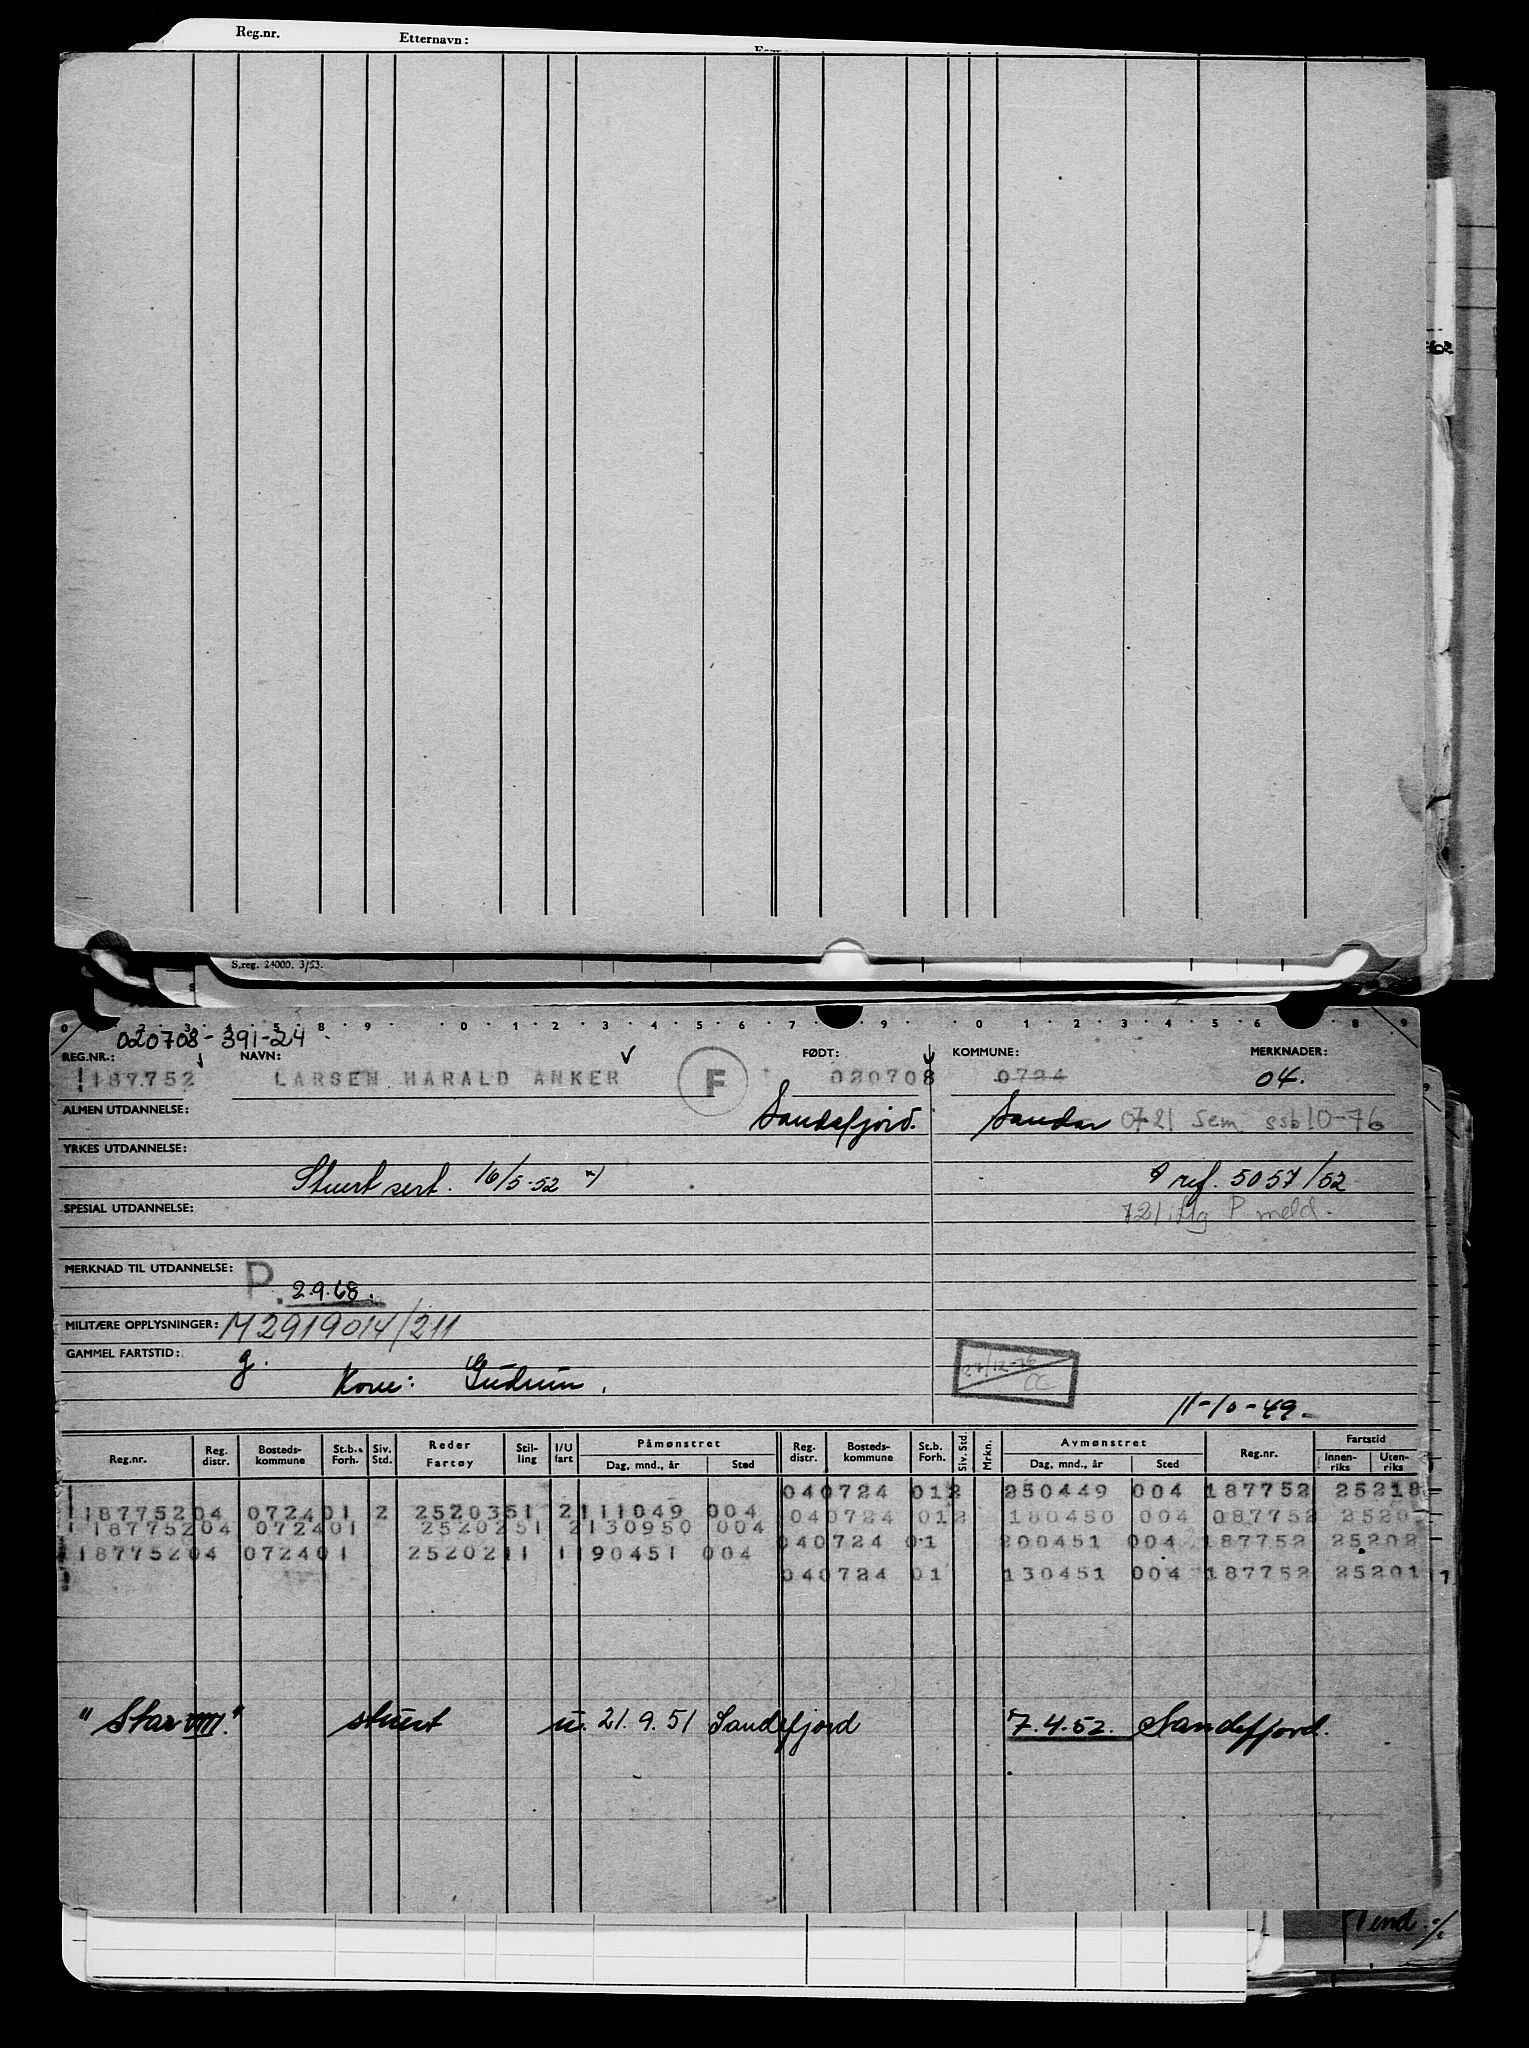 Reg.nr. Etternavn:
S.reg. 24000. 3/53.
020708-391-24
REG.NR.: NAVN: FØDT: KOMMUNE: MERKNADER:
187752 LARSEN HARALD ANKER F 020708 0724 04.
ALMEN UTDANNELSE: Sandefjord. Sandar 0721 Sem. ssb10-76
YRKES UTDANNELSE:
Stuert sert. 16/5-52 x) ref. 5057/52
SPESIAL UTDANNELSE: P meld.
MERKNAD TIL UTDANNELSE: P. 2.9.68.
MILITÆRE OPPLYSNINGER: M2919014/211
GAMMEL FARTSTID: g. Kone: Gudrun. 27/12-76 CC
11-10-49.-
Reg.nr. Reg. distr. Bosteds- kommune St.b.- Forh. Siv. Std. Reder Fartøy Stil- ling I/U fart Påmønstret Dag, mnd., år Sted Reg. distr. Bosteds- kommune St.b. Forh. Siv. Std. Mrkn. Avmønstret Dag, mnd., år Sted Reg.nr. Fartstid Innen- riks Uten- riks
040724 012 250449 004 187752 25218
18775204 072401 2 2520351 2111049 004 040724 012 180450 004 087752 2520
18775204 072401 2520251 2130950 004
040724 01 200451 004 187752 25202
18775204 072401 2520211 1190451 004
040724 01 130451 004 187752 25201
"Star VIII." stuert u. 21.9.51 Sandefjord 7.4.52. Sandefjord.
1 end.